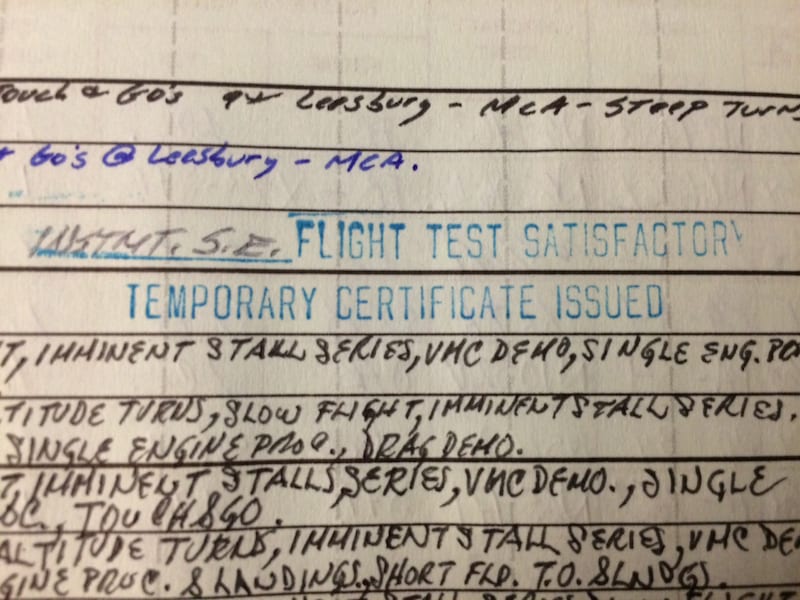 Touch & Go's at Leesburg - MCA - Steep Turns
Go's @ Leesburg - MCA.
INSTMT. S.E. FLIGHT TEST SATISFACTORY
TEMPORARY CERTIFICATE ISSUED
T, IMMINENT STALL SERIES, VMC DEMO, SINGLE ENG. PO
TITUDE TURNS, SLOW FLIGHT, IMMINENT STALL SERIES.
SINGLE ENGINE PROC., DRAG DEMO.
T, IMMINENT STALLS, SERIES, VMC DEMO., SINGLE
OC., TOUCH & GO.
ALTITUDE TURNS, IMMINENT STALL SERIES, VMC DE
GINE PROC. & LANDINGS, SHORT FLD. T.O. & LNDGS.